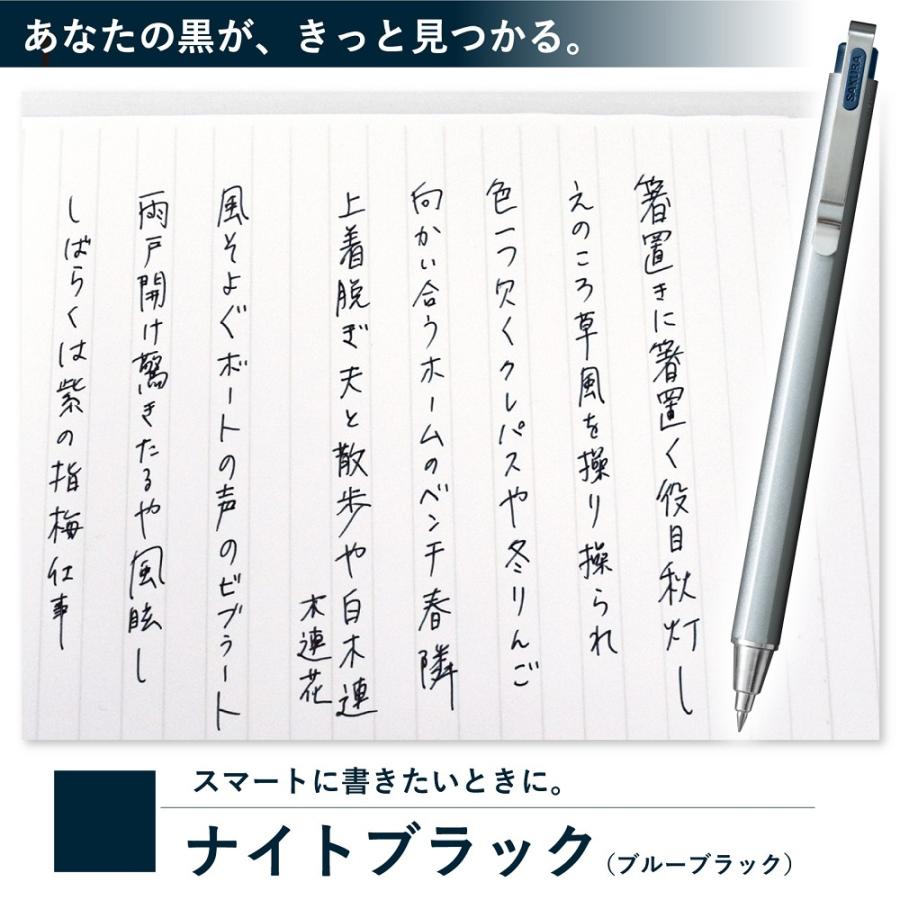 あなたの黒が、きっと見つかる。
SAKURA
箸置きに箸置く役目秋灯し
えのころ草風を操り操られ
色一つ欠くクレパスや冬りんご
向かい合うホームのベンチ春隣
上着脱ぎ夫と散歩や白木連
木連花
風そよぐボートの声のビブラート
雨戸開け驚きたるや風眩し
しばらくは紫の指梅仕事
スマートに書きたいときに。
ナイトブラック(ブルーブラック)